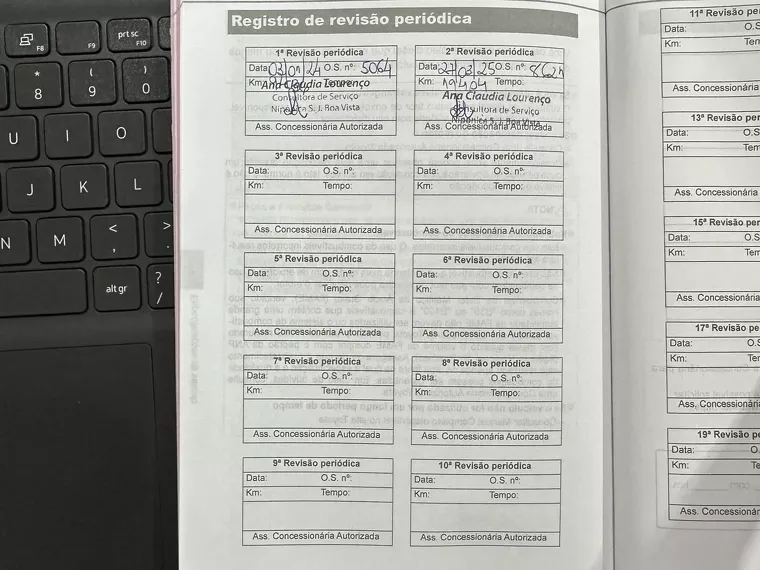 F8
F9
prt sc
F10
*
8
(
9
)
0
U
I
O
J
K
L
N
M
<
,
>
alt gr
?
/
Registro de revisão periódica
1ª Revisão periódica
Data: 03/01/24 O.S. nº: 5064
Km: Tempo:
Ana Claudia Lourenço
Consultora de Serviço
Nipônica S. J. Boa Vista
Ass. Concessionária Autorizada
2ª Revisão periódica
Data: 27/03/25 O.S. nº:
Km: 19404 Tempo:
Ana Claudia Lourenço
Consultora de Serviço
Nipônica S. J. Boa Vista
Ass. Concessionária Autorizada
3ª Revisão periódica
Data: O.S. nº:
Km: Tempo:
Ass. Concessionária Autorizada
4ª Revisão periódica
Data: O.S. nº:
Km: Tempo:
Ass. Concessionária Autorizada
5ª Revisão periódica
Data: O.S. nº:
Km: Tempo:
Ass. Concessionária Autorizada
6ª Revisão periódica
Data: O.S. nº:
Km: Tempo:
Ass. Concessionária Autorizada
7ª Revisão periódica
Data: O.S. nº:
Km: Tempo:
Ass. Concessionária Autorizada
8ª Revisão periódica
Data: O.S. nº:
Km: Tempo:
Ass. Concessionária Autorizada
9ª Revisão periódica
Data: O.S. nº:
Km: Tempo:
Ass. Concessionária Autorizada
10ª Revisão periódica
Data: O.S. nº:
Km: Tempo:
Ass. Concessionária Autorizada
11ª Revisão per
Data: O.S
Km: Te
Ass. Concessionária
13ª Revisão per
Data: O.S
Km: Tem
Ass. Concessionária
15ª Revisão per
Data: O.S
Km: Te
Ass. Concessionária A
17ª Revisão pe
Data: O.S
Km: Te
Ass. Concessionária
19ª Revisão p
Data: O.
Km: T
Ass. Concessionária